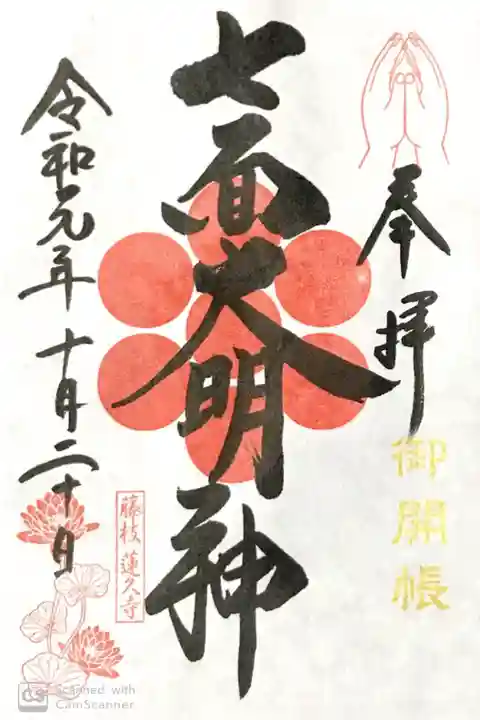 奉拝
御開帳
七面大明神
藤枝 蓮久寺
令和元年十月二十日
Scanned with
CamScanner